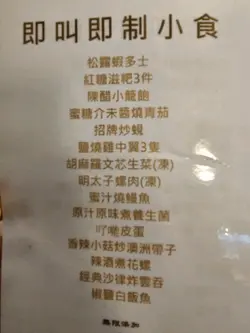 即叫即制小食
松露蝦多士
紅糖滋粑3件
陳醋小籠飽
蜜糖介末醬燒青茄
招牌炒蜆
鹽燒雞中翼3隻
胡麻羅文芯生菜(凍)
明太子螺肉(凍)
蜜汁燒鰻魚
原汁原味煮養生菌
叮哋皮蛋
香辣小菇炒澳洲帶子
辣酒煮花螺
經典沙律炸雲吞
椒鹽白飯魚
無限添加